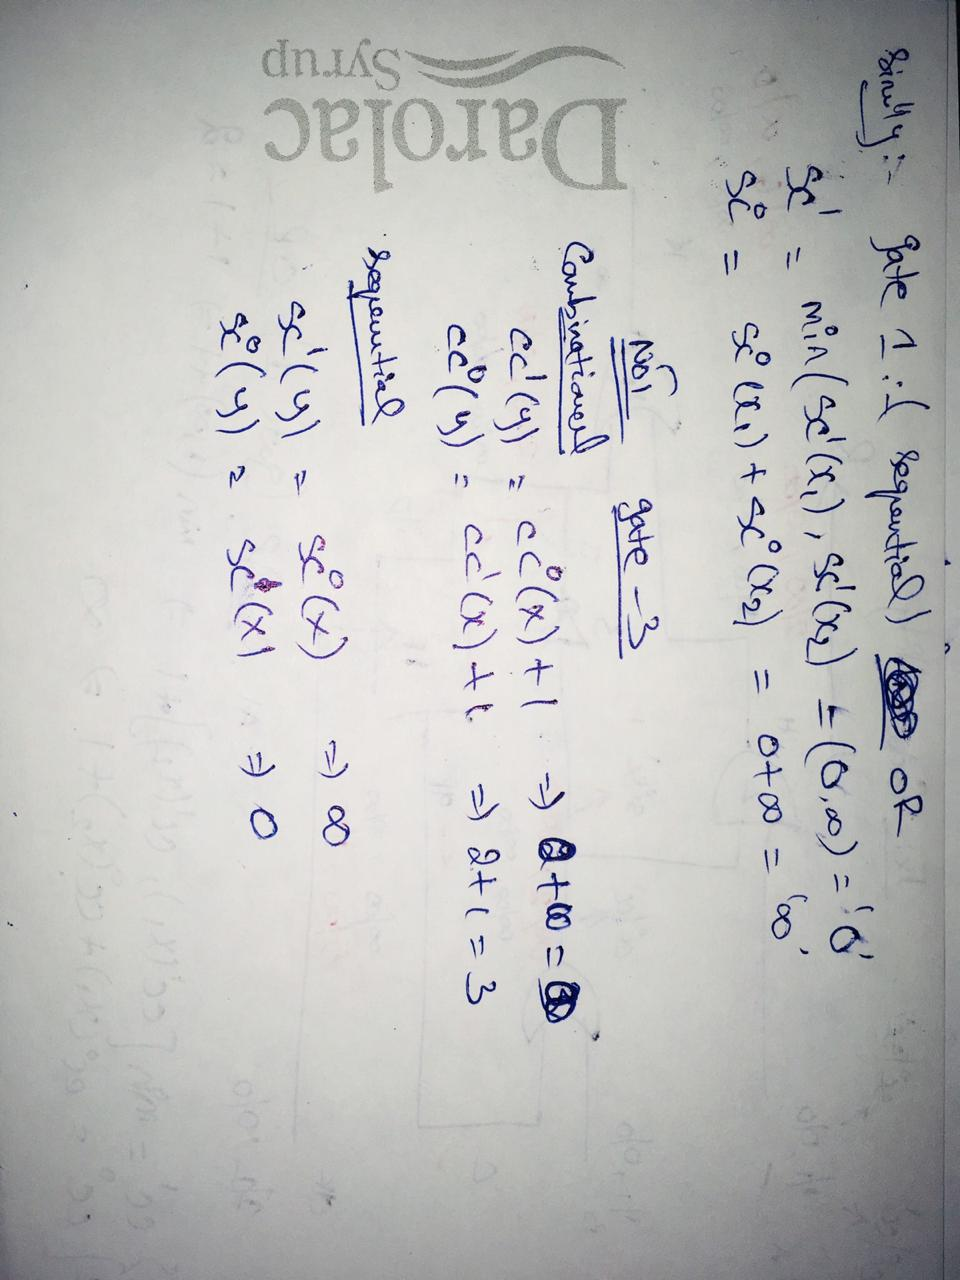 Simlly :- gate 1 :- ( sequential ) OR
SC¹ = min ( SC¹(x₁), SC¹(x₂) = (0, ∞) = '0'
SC⁰ = SC⁰(x₁) + SC⁰(x₂) = 0 + ∞ = '∞'
gate - 3
Combinational
CC¹(y) = CC⁰(x) + 1 ⇒ + ∞ =
CC⁰(y) = CC¹(x) + 1 ⇒ 2 + 1 = 3
Sequential
SC¹(y) = SC⁰(x) ⇒ ∞
SC⁰(y) = SC¹(x) ⇒ 0
Darolac
Syrup